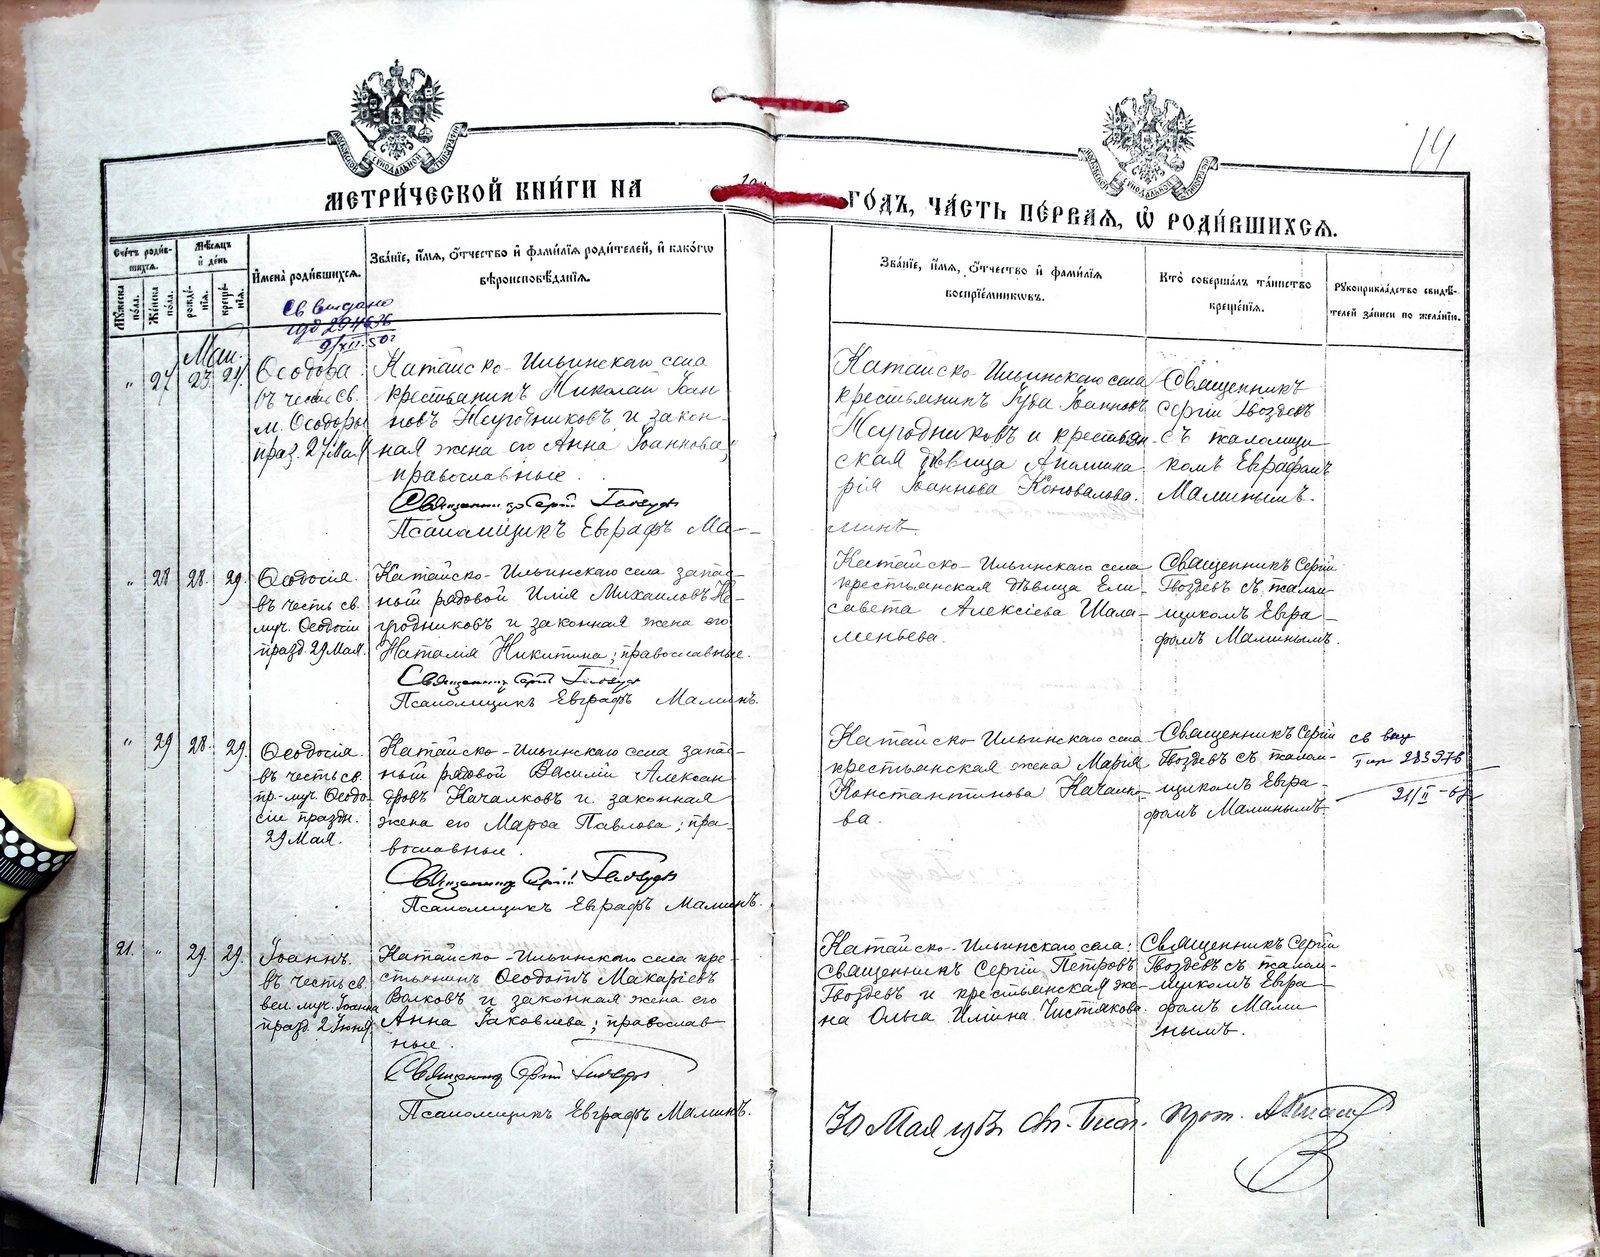 МОСКОВСКОЙ СУНОДАЛЬНОЙ ТИПОГРАФІИ
МОСКОВСКОЙ СУНОДАЛЬНОЙ ТИПОГРАФІИ
14
МЕТРИ́ЧЕСКОЙ КНИ́ГИ НА
ГО́ДЪ, ЧА́СТЬ ПЕ́РВАЯ, Ѡ҆ РОДИ́ВШИХСЯ.
Сче́тъ роди́в-
шихся.
Мѣ́сяцъ
и҆ де́нь
Му́жеска по́ла.
Же́нска по́ла.
рожде́нія.
креще́нія.
И҆мена̀ роди́вшихся.
Зва́ніе, и҆́мя, ѻ҆́тчество и҆ фами́лія роди́телей, и҆ како́гѡ
вѣроисповѣ́данія.
Зва́ніе, и҆́мя, ѻ҆́тчество и҆ фами́лія
воспріе́мниковъ.
Кто̀ соверша́лъ та́инство
креще́нія.
Рꙋкоприкла́дство свидѣ́-
телей за́писи по жела́нію.
Св выдано
9/XII-50г
Маи.
" 27 23 24
Ѳеодора
въ честь св.
м. Ѳеодоры
праз. 27 Мая
Катайско-Ильинскаго села
крестьянинъ Николай Іоан
новъ Неугодниковъ и закон-
ная жена его Анна Іоаннова,
православные.
Священникъ Сергій Гвоздев
Псаломщикъ Евграфъ Ма-
Катайско-Ильинскаго села
крестьянинъ Іуда Іоанновъ
Неугодниковъ и крестьян-
ская дѣвица Аполлина
рія Іоаннова Коновалова.
минъ
Священникъ
Сергій Гвоздевъ
съ псаломщи
комъ Евграфомъ
Маминымъ.
" 28 28. 29.
Ѳеодосія.
въ честь св.
муч. Ѳеодосіи
празд. 29 Мая.
Катайско-Ильинскаго села запас-
ный рядовой Илія Михаиловъ Не-
угодниковъ и законная жена его
Наталія Никитина; православные.
Священникъ Сергій Гвоздевъ
Псаломщикъ Евграфъ Маминъ.
Катайско-Ильинскаго села
крестьянская дѣвица Ели-
савета Алексіева Шала-
ментьева.
Священникъ Сергій
Гвоздевъ съ псалом-
щикомъ Евгра-
фомъ Маминымъ.
" 29 28. 29.
Ѳеодосія
въ честь св.
пр.-муч. Ѳеодо-
сіи праздн.
29 Мая.
Катайско-Ильинскаго села запас-
ный рядовой Василій Алексан
дровъ Качалковъ и законная
жена его Марѳа Павлова; пра-
вославные.
Священникъ Сергій Гвоздевъ
Псаломщикъ Евграфъ Маминъ.
Катайско-Ильинскаго села
крестьянская жена Марія
Константинова Качалко-
ва.
Священникъ Сергій
Гвоздевъ съ псалом-
щикомъ Евгра-
фомъ Маминымъ.
св выд
21/II-
21. " 29. 29.
Іоаннъ.
въ честь св.
вел. муч. Іоанна
празд. 2 Іюня.
Катайско-Ильинскаго села кре-
стьянинъ Ѳеодотъ Макаріевъ
Волковъ и законная жена его
Анна Іаковлева; православ
ные.
Священникъ Сергій Гвоздевъ
Псаломщикъ Евграфъ Маминъ.
Катайско-Ильинскаго села:
священникъ Сергій Петровъ
Гвоздевъ и крестьянская же-
на Ольга Илиина Чистякова.
Священникъ Сергій
Гвоздевъ съ псалом-
щикомъ Евгра
фомъ Мами
нымъ.
30 Мая